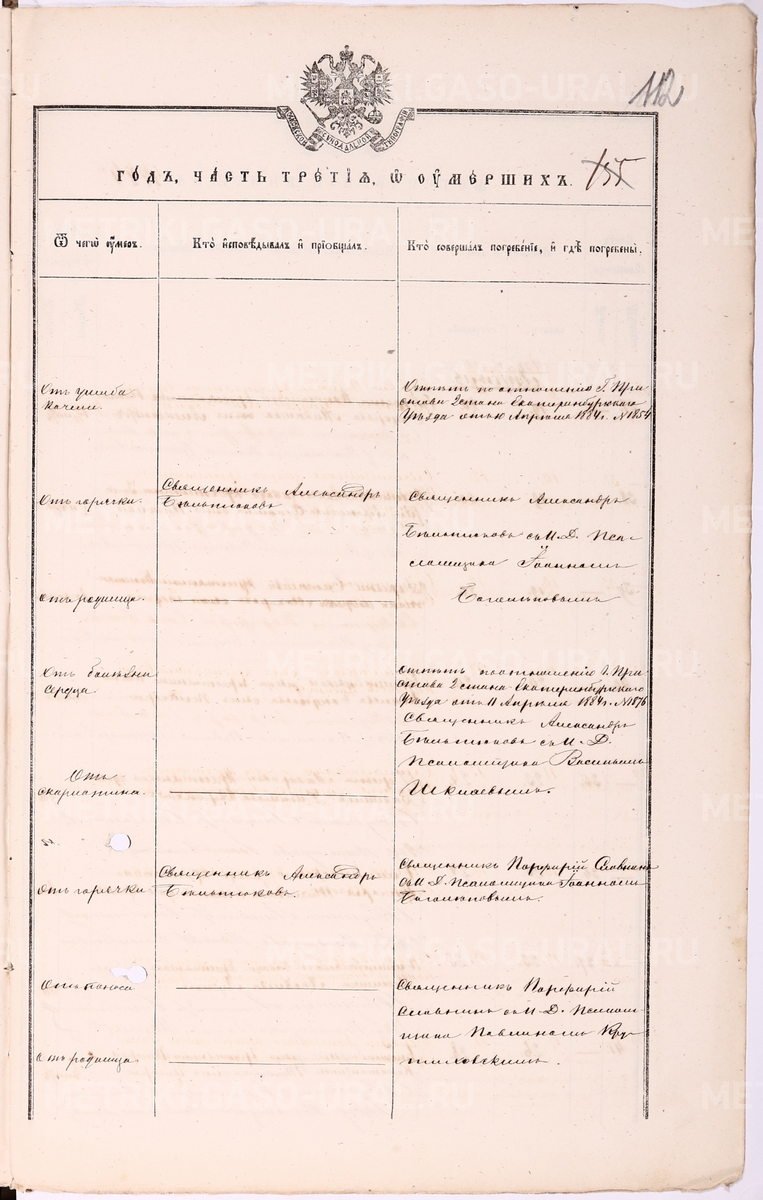 112
МОСКОВСКОЙ СѴНОДАЛЬНОЙ ТИПОГРАФІИ
ГО́ДЪ, ЧА́СТЬ ТРЕ́ТІѦ, Ѡ ОУ҆МЕ́РШИХЪ.
155
Ѿ чегѡ̀ оу҆́меръ.
Кто̀ и҆сповѣ́дывалъ и҆ прїѻбща́лъ.
Кто̀ соверша́лъ погребе́нїе, и҆ гдѣ̀ погребены̀.
Отъ ушиба
качели.
Отпѣтъ по отношенію Г. При
става 2 стана Екатеринбургскаго
Уѣзда отъ 10 Апрѣля 1884 г. № 1854
Отъ горячки
Священникъ Александръ
Бѣльтюковъ
Священникъ Александръ
Бѣльтюковъ съ И. Д. Пса-
ломщика Іоанномъ
Боголюповымъ
Отъ родимца.
Отъ болѣзни
сердца
Отпѣтъ по отношенію Г. При
става 2 стана Екатеринбургскаго
Уѣзда отъ 11 Апрѣля 1884 г. № 1876
Священникъ Александръ
Бѣльтюковъ съ И. Д.
Псаломщика Василіемъ
Шкляевымъ.
Отъ
скарлатина.
Отъ горячки
Священникъ Александръ
Бѣльтюковъ.
Священникъ Порфирій Славнинъ
съ И. Д. Псаломщика Іоанномъ
Боголюповымъ.
Отъ поноса
Священникъ Порфирій
Славнинъ съ И. Д. Псалом-
щика Павлиномъ Кру-
тиховскимъ.
Отъ родимца.
METRIKI.GASO-URAL.RU